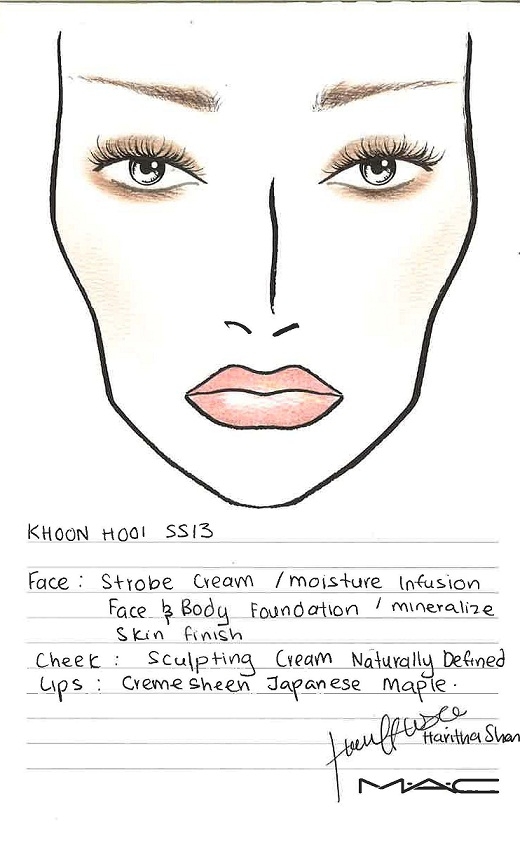 KHOON HOOI SS13
Face : Strobe Cream / moisture Infusion
Face & Body Foundation / mineralize
Skin finish
Cheek : Sculpting Cream Naturally Defined
Lips : Cremesheen Japanese Maple.
Haritha Shan
MAC